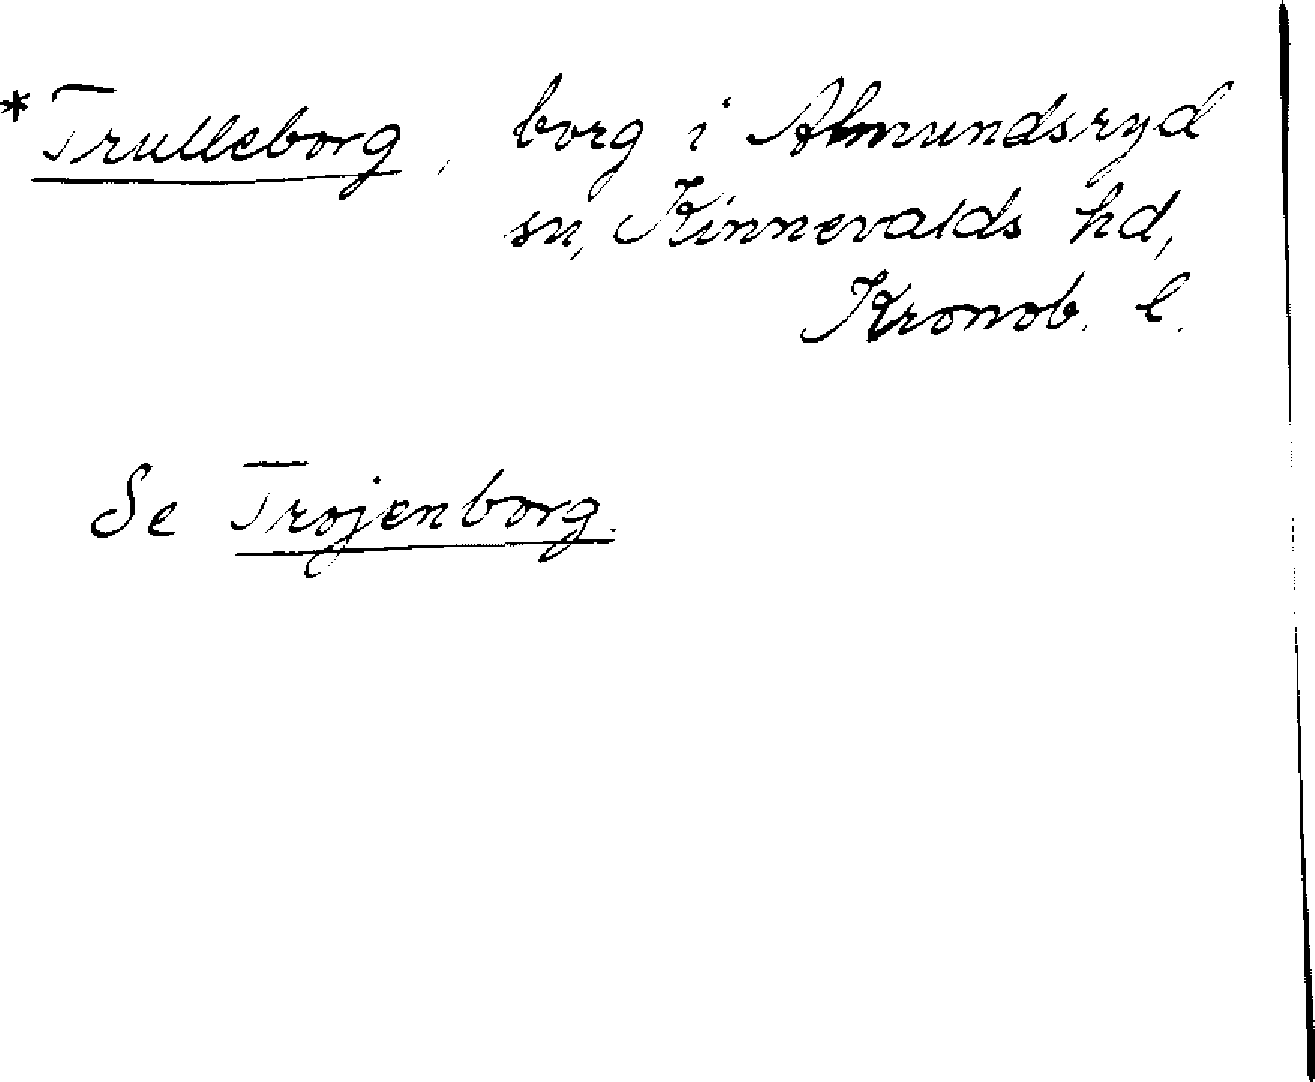 *Trulleborg, borg i Almundsryd
sn, Kinnevalds hd,
Kronob. l.
Se Trojenborg.